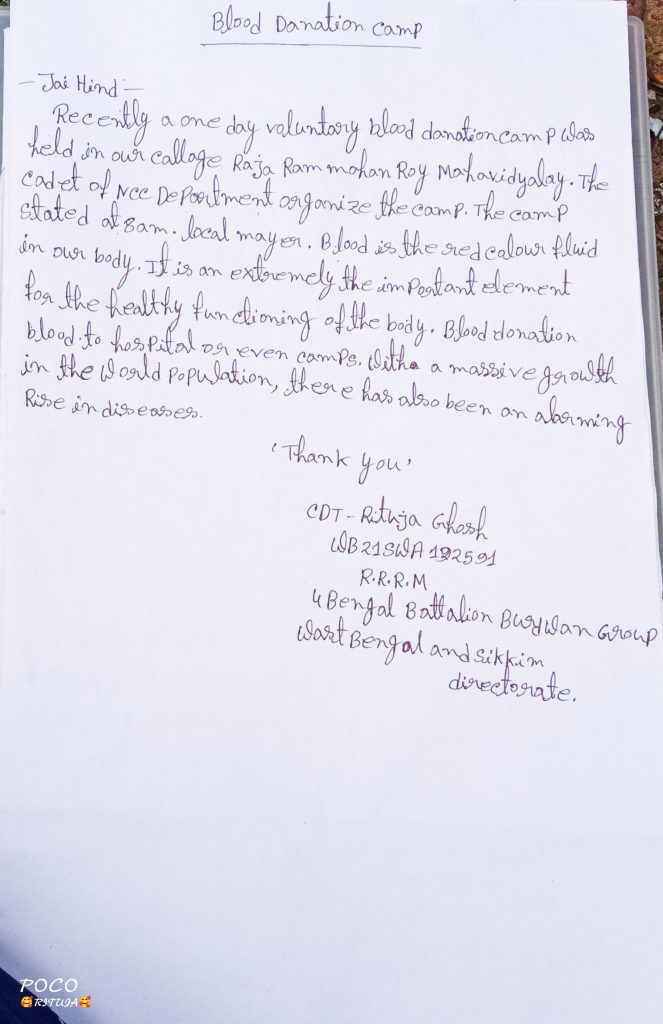 Blood Danation Camp
- Jai Hind :-
Recently a one day voluntary blood danation camp was
held in our callage Raja Ram mohan Roy Mahavidyalay. The
cadet of NCC DePartment organize the camp. The camp
stated at 8am. local mayer. Blood is the red calour fluid
in our body. It is an extremely the imPortant element
for the healthy functioning of the body. Blood donation
blood to hosPital or even camps. With a massive growth
in the World PoPulation, there has also been an alarming
Rise in diseases.
'Thank you'
CDT - Rituja Ghosh
WB21SWA192591
R.R.R.M
4 Bengal Battalion Burdwan Group
Wast Bengal and Sikkim
directorate.
POCO
🥰RITUJA🥰